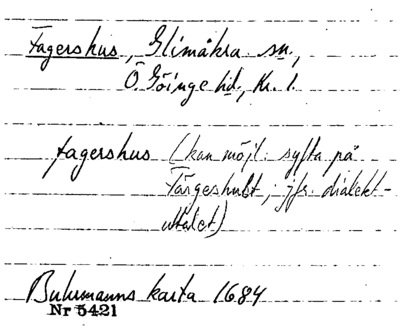 Fagershus, Glimåkra sn.,
Ö. Göinge hd., Kr. l.
fagershus (kan möjl. syfta på
Färgeshult, jfr. dialekt-
uttalet)
Buhrmanns karta 1684
Nr 5421